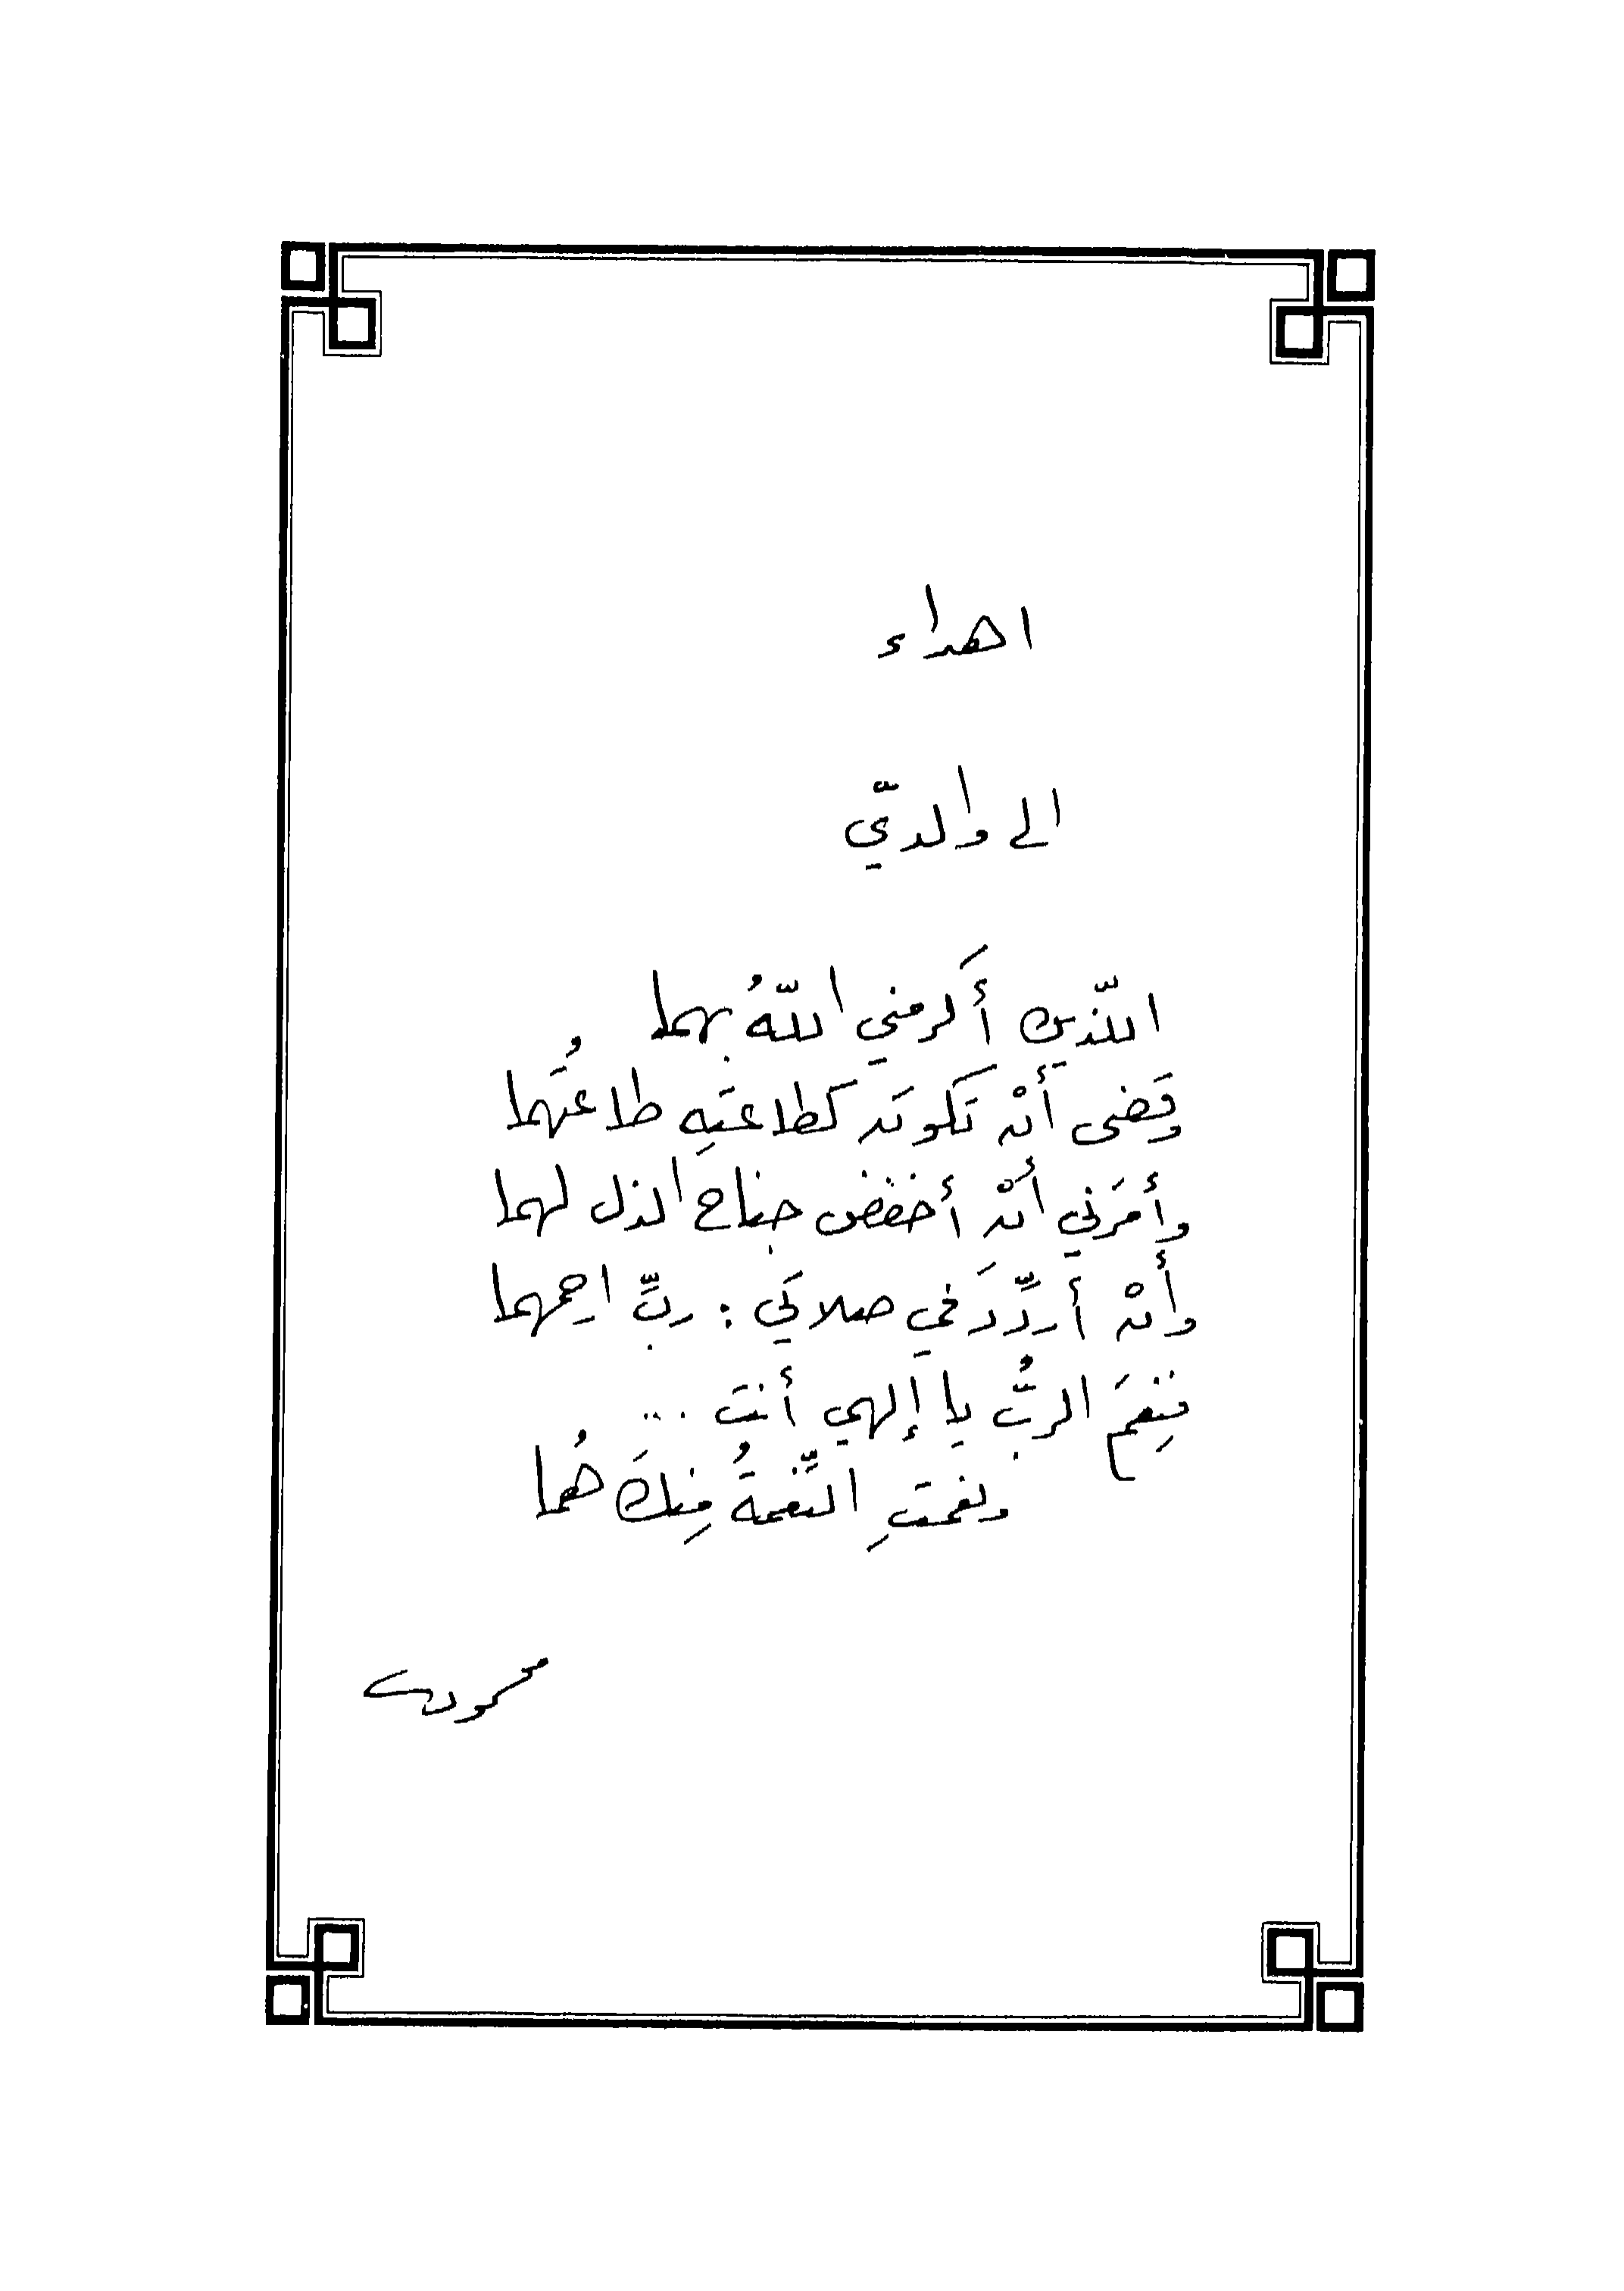 اهداء
الى والديّ
اللّذين أَكرمني اللّهُ بهما
وقَضى أنْ تَكونَ كطاعتِه طاعتُهما
وأمَرَني أنْ أخفض جناح الذل لهما
وأنْ أردِّدَ في صلاتي : ربِّ ارحمهما
فنِعمَ الربُّ يا إلهي أنت ...
ونعمتِ النِّعمةُ مِنكَ هُما
محمود